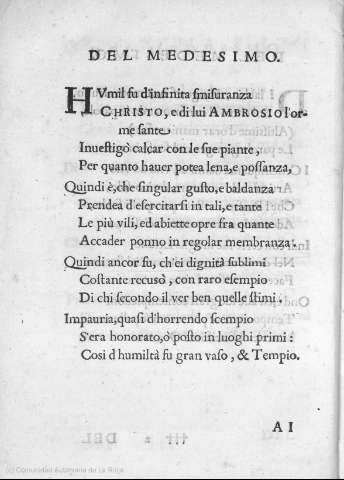 DEL MEDESIMO.
HVmil fu d'infinita smisuranza
CHRISTO, e di lui AMBROSIO l'or-
me sante
Inuestigò calcar con le sue piante,
Per quanto hauer potea lena, e possanza,
Quindi è, che singular gusto, e baldanza
Prendea d'esercitarsi in tali, e tante
Le più vili, ed abiette opre fra quante
Accader ponno in regolar membranza.
Quindi ancor fu, ch'ei dignità sublimi
Costante recusò, con raro esempio
Di chi secondo il ver ben quelle stimi.
Impauria, quasi d'horrendo scempio
S'era honorato, ò posto in luoghi primi:
Cosi d humiltà fu gran vaso, & Tempio.
AI
(c) Comunidad Autónoma de La Rioja